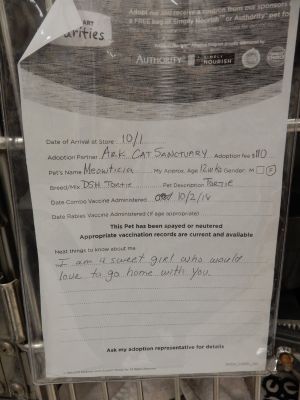 ART
arities
Adopt me and receive a coupon from our sponsors
a FREE bag of Simply Nourish or Authority pet fo
AUTHORITY SIMPLY NOURISH
Date of Arrival at Store 10/1
Adoption Partner ARK CAT SANCTUARY Adoption fee $110
Pet's Name Meowticia My Approx. Age 12wks Gender: M F
Breed/Mix DSH Tortie Pet Description TORTIE
Date Combo Vaccine Administered 10/2/18
Date Rabies Vaccine Administered (if age appropriate)
This Pet has been spayed or neutered
Appropriate vaccination records are current and available
Neat things to know about me
I am a sweet girl who would
love to go home with you.
Ask my adoption representative for details